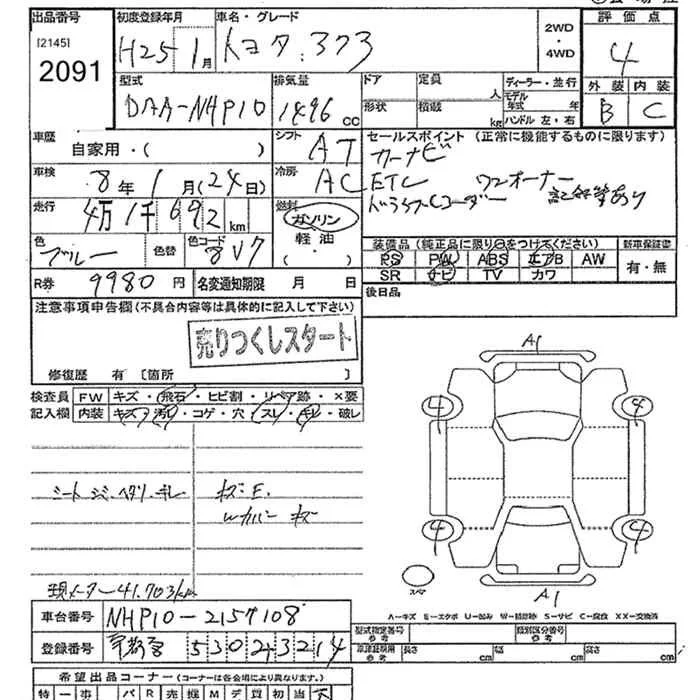 出品番号 初度登録年月 車名・グレード 2WD・4WD 評価点
[2145]
2091
H25 1月 トヨタ. 373 4
外装 内装
B C
型式 排気量 ドア 定員 人 ディーラー・並行
モデル年式 年
DAA-NHP10 1496cc 形状 積載 kg ハンドル 左・右
車歴 自家用・( ) シフト AT セールスポイント (正常に機能するものに限ります)
カーナビ
車検 8年1月(24日) 冷房 AC ETC ワンオーナー
走行 4万1千692km 燃料 ガソリン 軽油 (・) 記録簿あり
色 ブルー 色替 色コード 8V7
装備品 (純正品に限り○をつけてください) 新車保証書
PS PW ABS エアB AW 有・無
SR ナビ TV カワ
R券 9980円 名変通知期限 月 日 後日品
注意事項申告欄(不具合内容等は具体的に記入して下さい)
売りつくしスタート
修復歴 有 [箇所 ]
検査員記入欄 FW キズ・飛石・ヒビ割・リペア跡・×要
内装 キズ・汚れ・コゲ・穴・スレ・キレ・破レ
A1
4 4
シート シミ.ヘタリ.キレ キズ.E.
Wカバー キズ
4 4
スペア
A1
現メーター41.703km
A=キズ E=エクボ U=凹み W=補修跡 S=サビ C=腐食 XX=交換済
車台番号 NHP10-2157108
型式指定番号 参考 類別区分番号 参考
登録番号 530 3214
車検証記載 参考 長さ cm 幅 cm 高さ cm
希望出品コーナー (コーナーは各会場により異なります。)
特 一 事 パ R 売 低 M デ 買 初 当